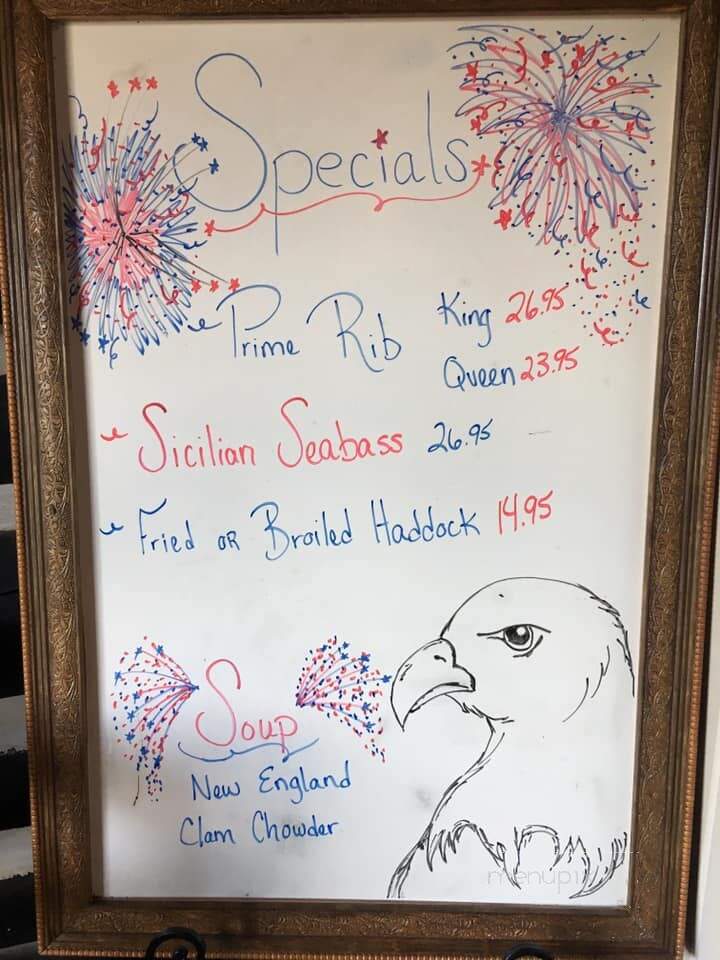 Specials
Prime Rib King 26.95
Queen 23.95
Sicilian Seabass 26.95
Fried or Broiled Haddock 14.95
Soup
New England
Clam Chowder